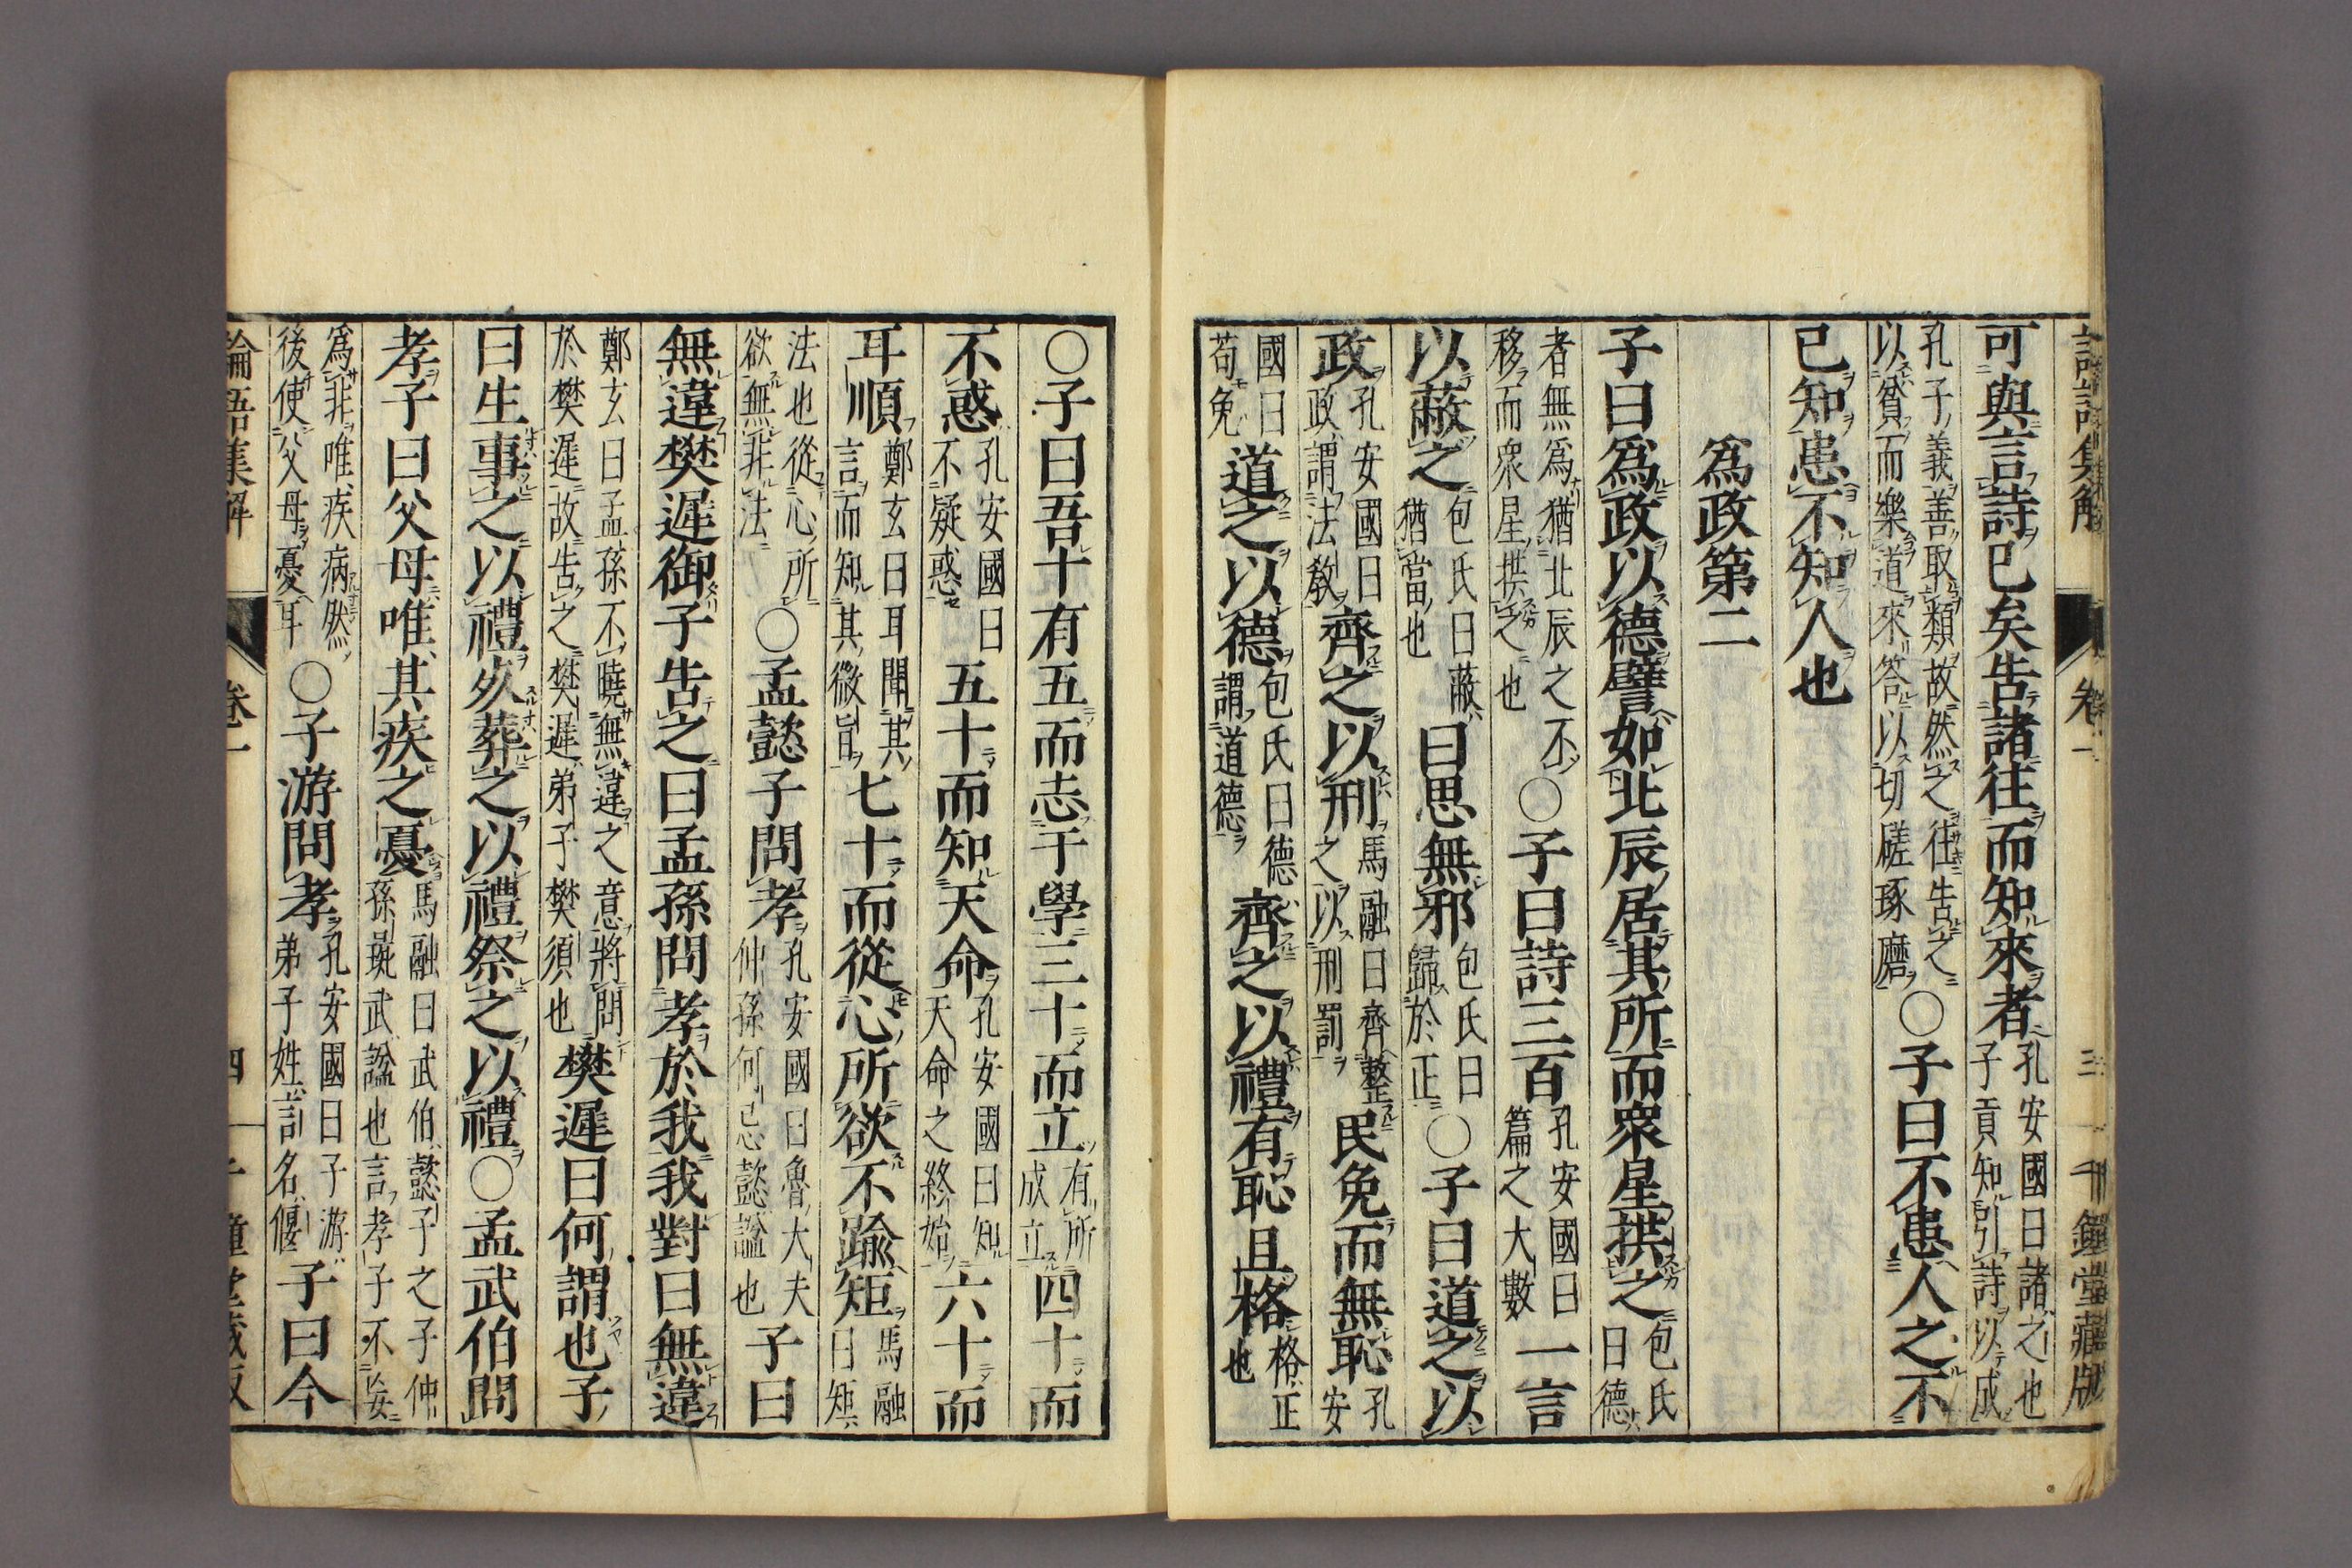 可與言詩已矣告諸往而知來者孔安國曰諸之也子貢知引詩以成
孔子義善取類故然之往告之以貧而樂道來答以切磋琢磨〇子曰不患人之不
已知患不知人也
爲政第二
子曰爲政以德譬如北辰居其所而衆星拱之包氏曰德
者無爲猶北辰之不移而衆星拱之也〇子曰詩三百孔安國曰篇之大數一言
以蔽之包氏曰蔽猶當也曰思無邪包氏曰歸於正〇子曰道之以
政孔安國曰政謂法教齊之以刑馬融曰齊整之以刑罰民免而無恥孔安
國曰苟免道之以德包氏曰德謂道德齊之以禮有恥且格格正也
〇子曰吾十有五而志于學三十而立有所成立四十而
不惑孔安國曰不疑惑五十而知天命孔安國曰知天命之終始六十而
耳順鄭玄曰耳聞其言而知其微旨七十而從心所欲不踰矩馬融曰矩
法也從心所欲無非法〇孟懿子問孝孔安國曰魯大夫仲孫何忌懿謚也子曰
無違樊遲御子告之曰孟孫問孝於我我對曰無違
鄭玄曰孟孫不曉無違之意將問於樊遲故告之樊遲弟子樊須也樊遲曰何謂也子
曰生事之以禮死葬之以禮祭之以禮〇孟武伯問
孝子曰父母唯其疾之憂馬融曰武伯懿子之子仲孫彘武謚也言孝子不妄
爲非唯疾病然後使父母憂耳〇子游問孝孔安國曰子游弟子姓言名偃子曰今
論語集解 卷一 四 千鐘堂藏版